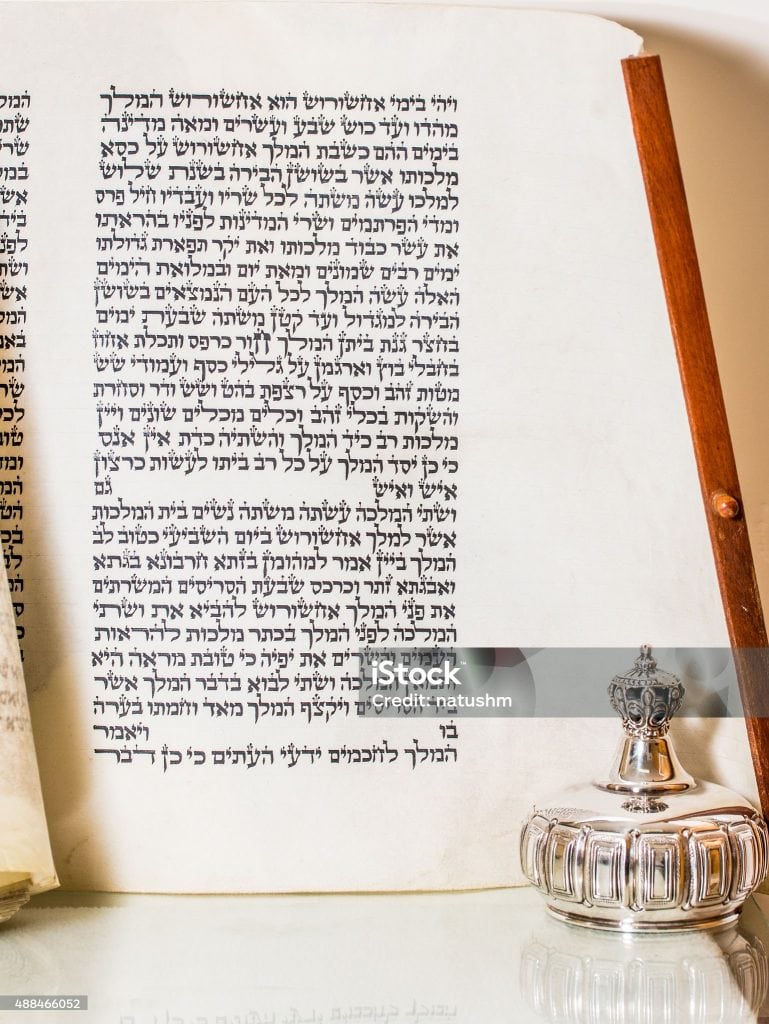 ויהי בימי אחשורוש הוא אחשורוש המלך
מהדו ועד כוש שבע ועשרים ומאה מדינה
בימים ההם כשבת המלך אחשורוש על כסא
מלכותו אשר בשושן הבירה בשנת שלוש
למלכו עשה משתה לכל שריו ועבדיו חיל פרס
ומדי הפרתמים ושרי המדינות לפניו בהראתו
את עשר כבוד מלכותו ואת יקר תפארת גדולתו
ימים רבים שמונים ומאת יום ובמלואת הימים
האלה עשה המלך לכל העם הנמצאים בשושן
הבירה למגדול ועד קטן משתה שבעת ימים
בחצר גנת ביתן המלך חור כרפס ותכלת אחוז
בחבלי בוץ וארגמן על גלילי כסף ועמודי שש
מטות זהב וכסף על רצפת בהט ושש ודר וסחרת
והשקות בכלי זהב וכלים מכלים שונים ויין
מלכות רב כיד המלך והשתיה כדת אין אנס
כי כן יסד המלך על כל רב ביתו לעשות כרצון
איש ואיש גם
ושתי המלכה עשתה משתה נשים בית המלכות
אשר למלך אחשורוש ביום השביעי כטוב לב
המלך ביין אמר למהומן בזתא חרבונא בגתא
ואבגתא זתר וכרכס שבעת הסריסים המשרתים
את פני המלך אחשורוש להביא את ושתי
המלכה לפני המלך בכתר מלכות להראות
העמים והשרים את יפיה כי טובת מראה היא
ותמאן המלכה ושתי לבוא בדבר המלך אשר
ביד הסריסים ויקצף המלך מאד וחמתו בערה
בו ויאמר
המלך לחכמים ידעי העתים כי כן דבר
iStock
Credit: natushm
488466052